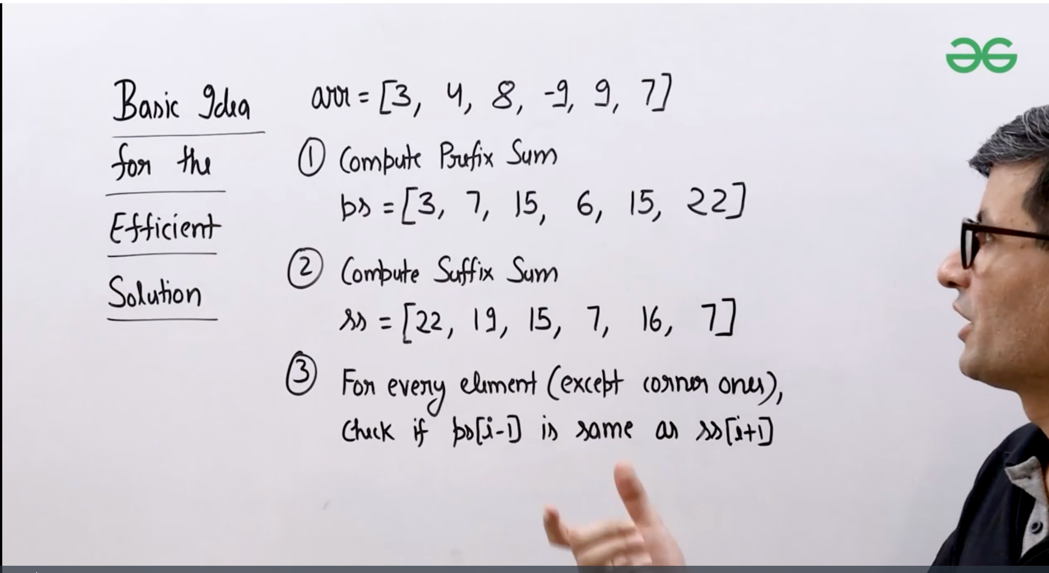 Basic Idea
for the
Efficient
Solution
arr = [3, 4, 8, -9, 9, 7]
① Compute Prefix Sum
ps = [3, 7, 15, 6, 15, 22]
② Compute Suffix Sum
ss = [22, 19, 15, 7, 16, 7]
③ For every element (except corner ones),
Check if ps[i-1] is same as ss[i+1]